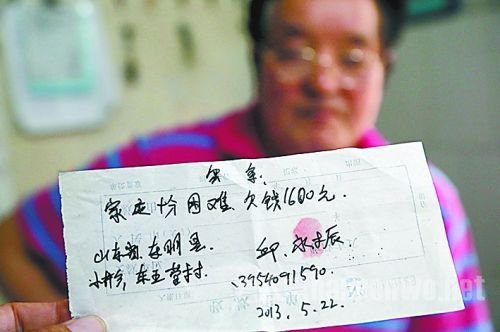 欠条.
家庭十分困难. 欠钱1600元.
山东省, 东明县.
小井乡, 东王营村.
13954091590.
2013. 5.22.